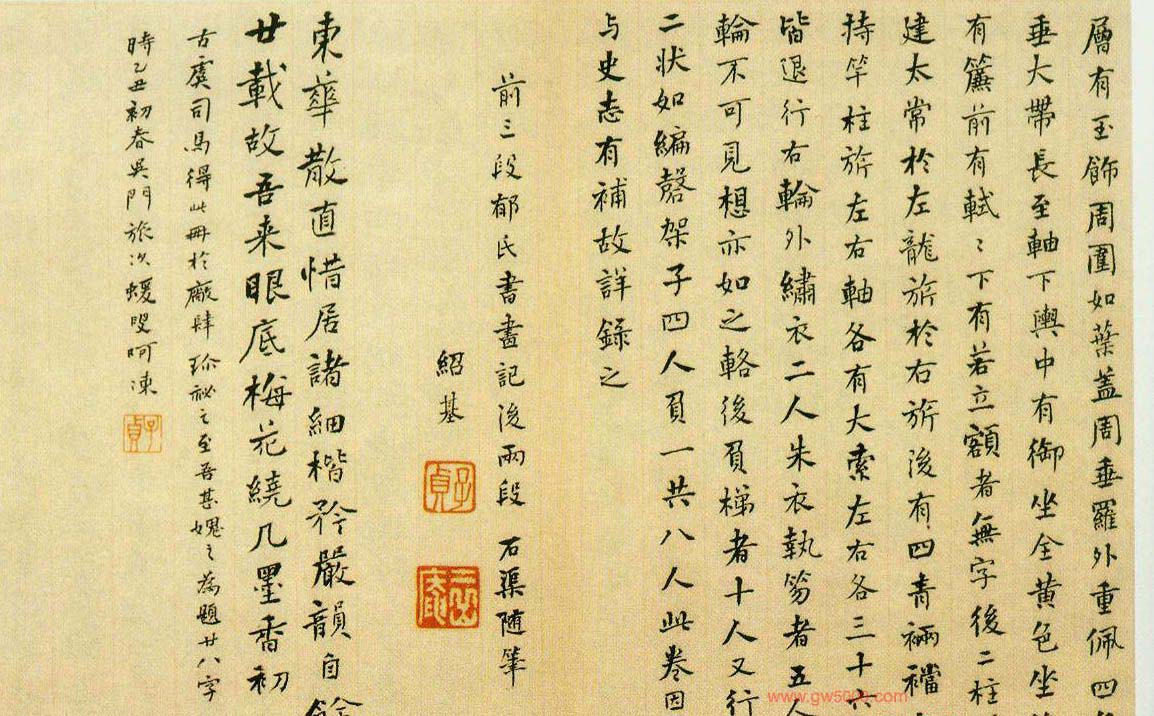 層有玉飾周圍如葉盖周垂羅外重佩四
垂大帶長至軸下輿中有御坐全黄色坐
有簾前有軾〻下有若立額者無字後二柱
建太常於左龍旂於右旂後有四青裲襠
持竿柱旂左右軸各有大索左右各三十六
皆退行右輪外繡衣二人朱衣執笏者五人
輪不可見想亦如之輅後負梯者十人又行
二状如編磬架子四人負一共八人此卷因
与史志有補故詳錄之
前三段郁氏書畫記後兩段石渠随筆
紹基
子貞
東華散直惜居諸細楷矜嚴韻自餘
廿載故吾来眼底梅花繞几墨香初
古虞司馬得此冊於廠肆珍祕之至吾甚媿之為題廿八字
時乙丑初春吳門旅次蝯叟呵凍
子貞
www.gw5000.com